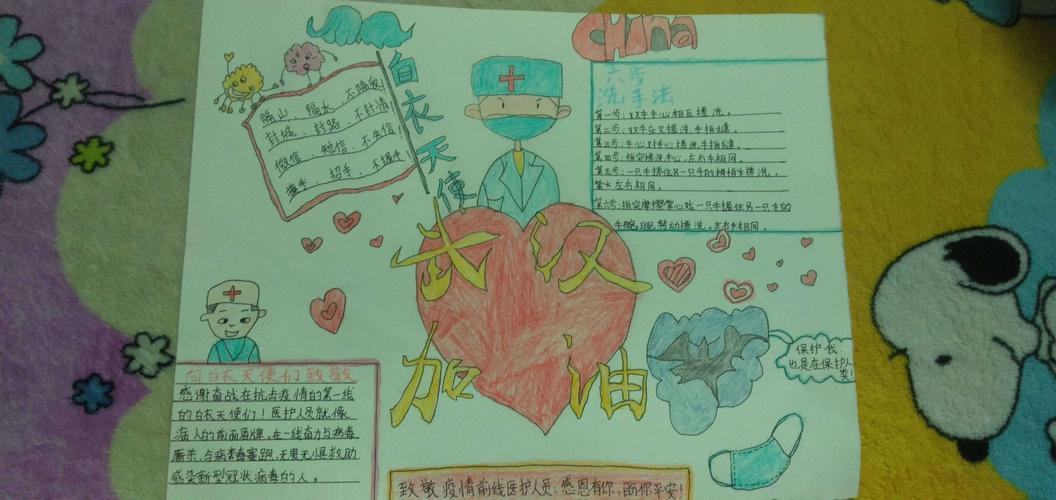 China
白衣天使
隔山、隔水、不隔爱!
封城、封路、不封情!
微信、短信、不失信!
挥手、招手、不握手!
六步
洗手法
第一步:双手手心相互搓洗。
第二步:双手交叉搓洗手指缝。
第三步:手心对手心搓洗手指缝。
第四步:指尖搓洗手心,左右手相同。
第五步:一只手握住另一只手的拇指搓洗。
左右相同。
第六步:指尖摩擦掌心或一只手握住另一只手的
手腕转动搓洗,左右手相同。
武汉
加油
向白衣天使们致敬
感谢奋战在抗击疫情的第一线
的白衣天使们!医护人员就像
病人的前面盾牌,在一线奋力与病毒
厮杀,与病毒赛跑,无畏无惧救助
感染新型冠状病毒的人。
保护我
也是在保护人
类!
致敬疫情前线医护人员:感恩有你,盼你平安!